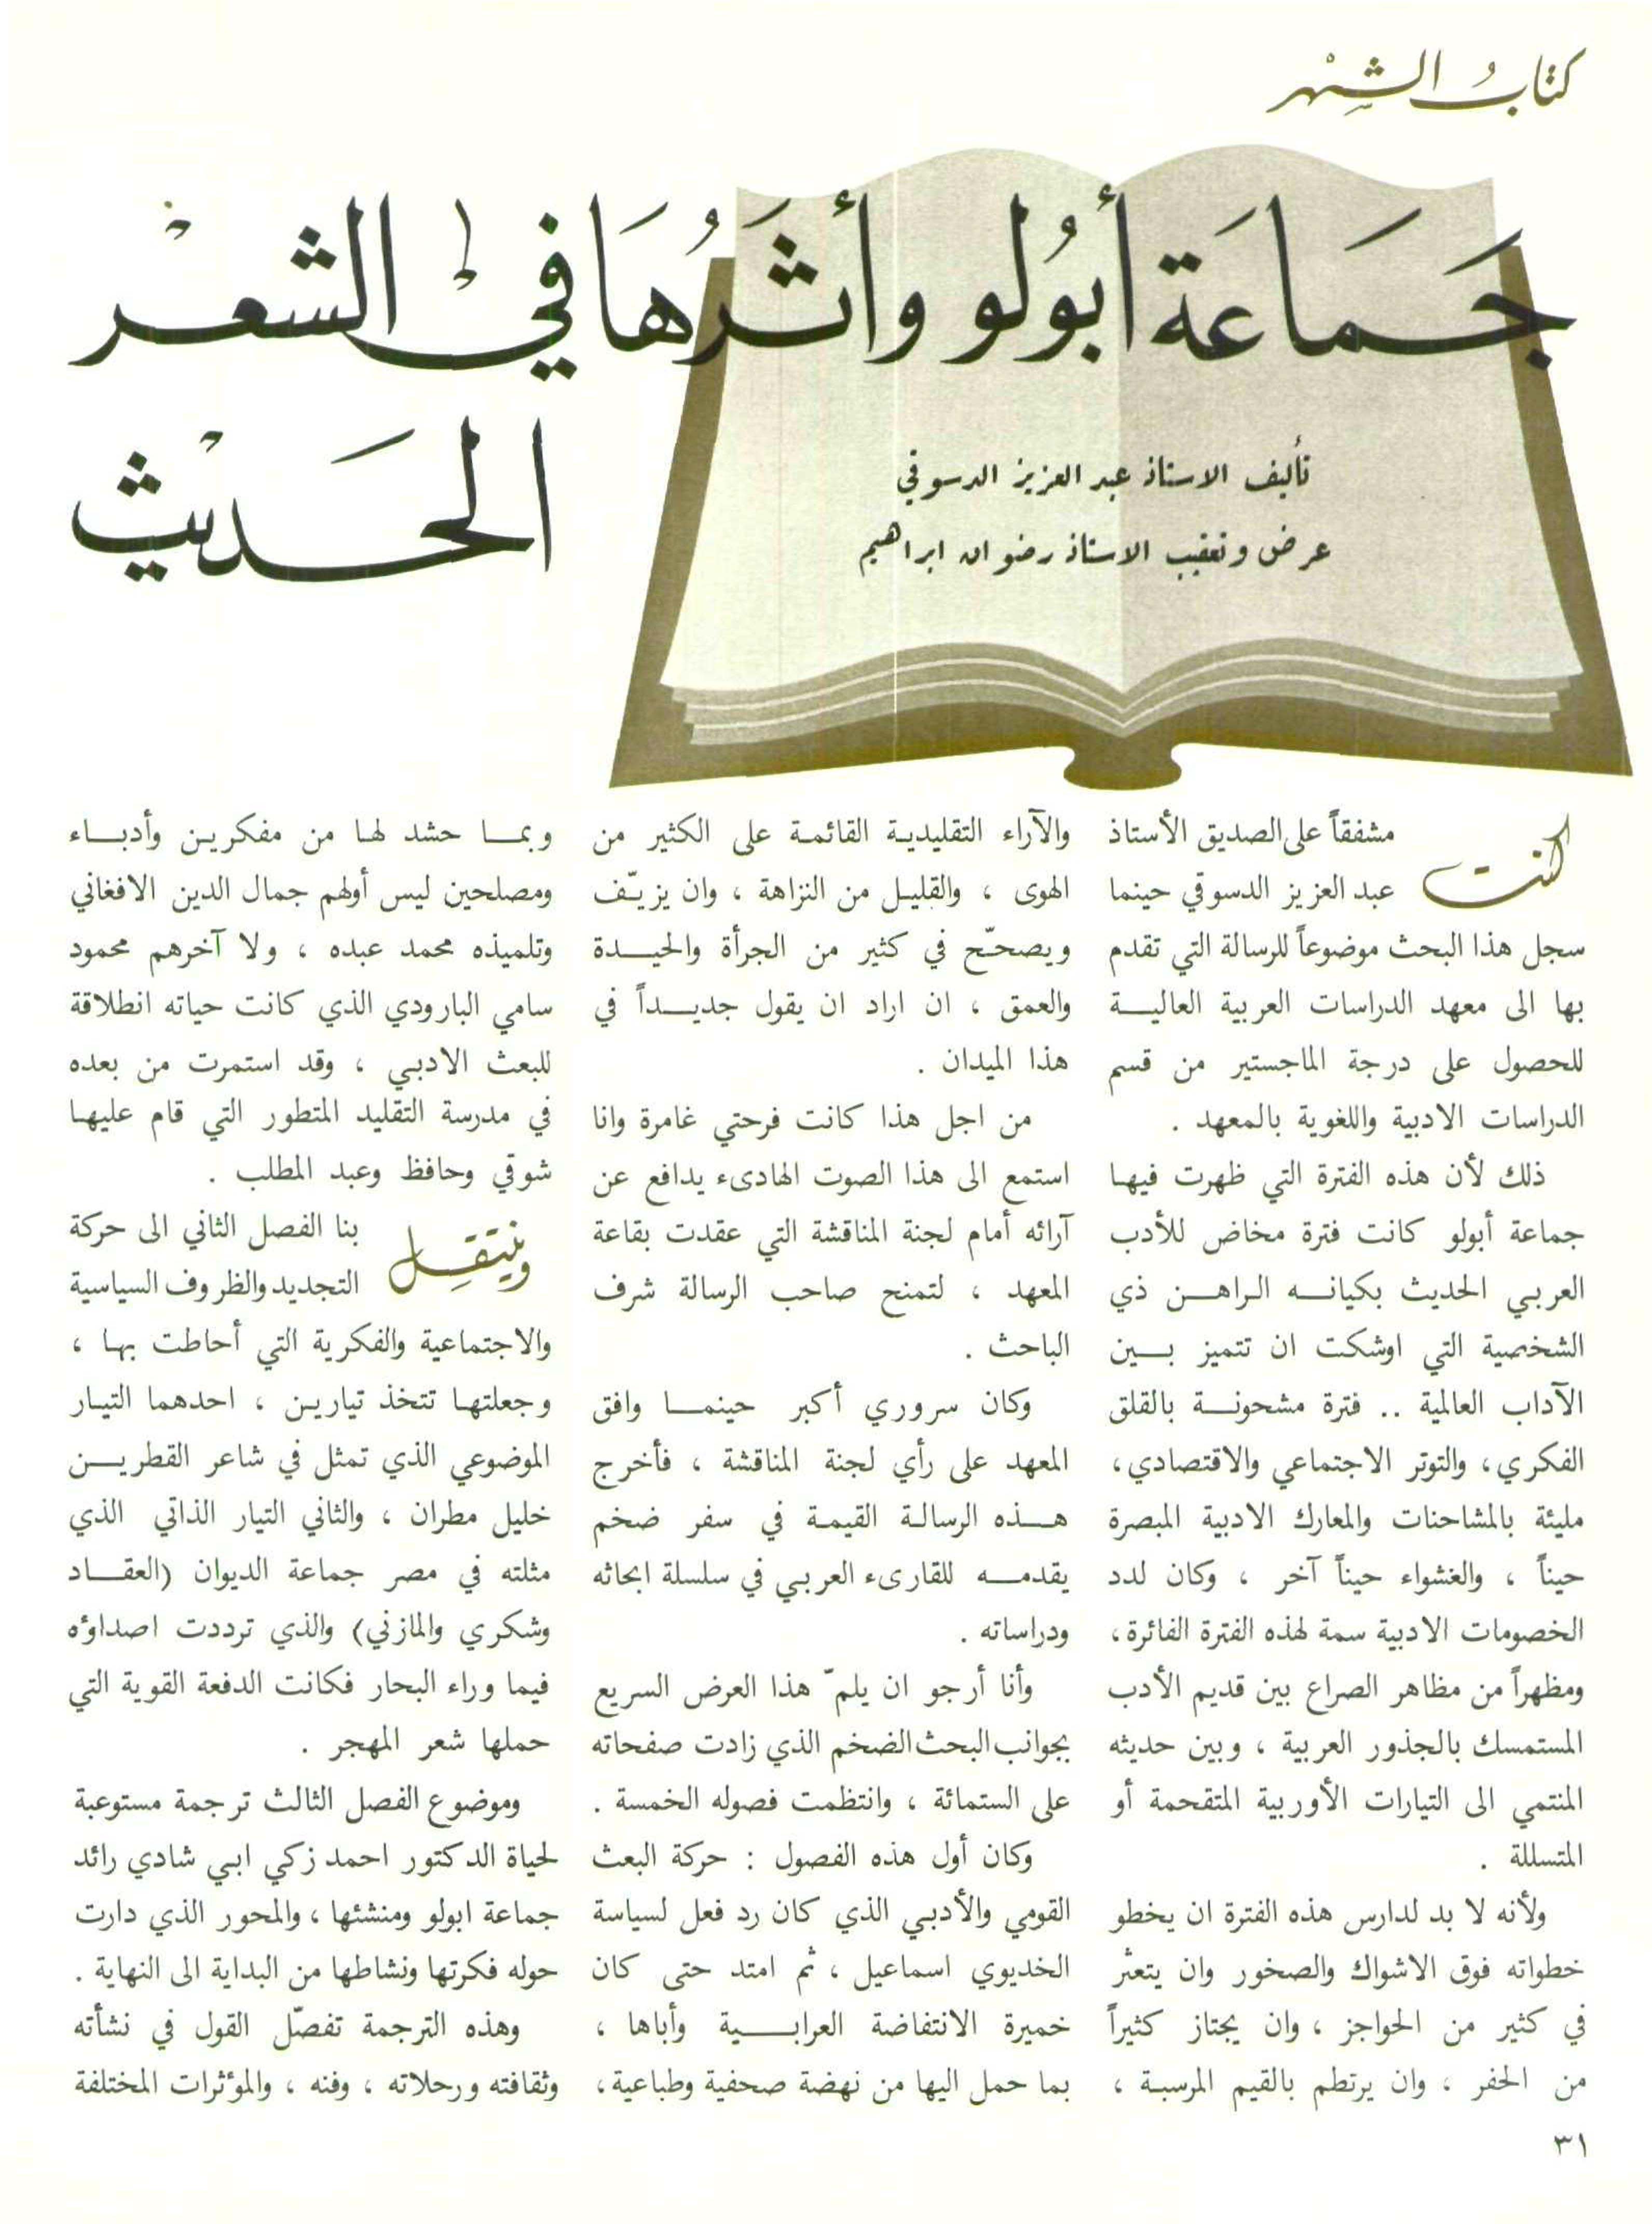 كتابُ الشهْر
جَمَاعَة أبُولُو وأثَرُهَا في الشعْر
الحَديْث
تأليف الاستاذ عبد العزيز الدسوقي
عرض وتعقيب الاستاذ رضوان ابراهيم
كنت مشفقاً على الصديق الأستاذ
عبد العزيز الدسوقي حينما
سجل هذا البحث موضوعاً للرسالة التي تقدم
بها الى معهد الدراسات العربية العالية
للحصول على درجة الماجستير من قسم
الدراسات الادبية واللغوية بالمعهد .
ذلك لأن هذه الفترة التي ظهرت فيها
جماعة أبولو كانت فترة مخاض للأدب
العربي الحديث بكيانه الراهن ذي
الشخصية التي اوشكت ان تتميز بين
الآداب العالمية .. فترة مشحونة بالقلق
الفكري، والتوتر الاجتماعي والاقتصادي،
مليئة بالمشاحنات والمعارك الادبية المبصرة
حيناً ، والغشواء حيناً آخر ، وكان لدد
الخصومات الادبية سمة لهذه الفترة الفائرة،
ومظهراً من مظاهر الصراع بين قديم الأدب
المستمسك بالجذور العربية ، وبين حديثه
المنتمي الى التيارات الأوربية المتقحمة أو
المتسللة .
ولأنه لا بد لدارس هذه الفترة ان يخطو
خطواته فوق الاشواك والصخور وان يتعثر
في كثير من الحواجز ، وان يجتاز كثيراً
من الحفر ، وان يرتطم بالقيم المرسبة ،
والآراء التقليدية القائمة على الكثير من
الهوى ، والقليل من النزاهة ، وان يزيّف
ويصحّح في كثير من الجرأة والحيدة
والعمق ، ان اراد ان يقول جديداً في
هذا الميدان .
من اجل هذا كانت فرحتي غامرة وانا
استمع الى هذا الصوت الهادىء يدافع عن
آرائه أمام لجنة المناقشة التي عقدت بقاعة
المعهد ، لتمنح صاحب الرسالة شرف
الباحث .
وكان سروري أكبر حينما وافق
المعهد على رأي لجنة المناقشة ، فأخرج
هذه الرسالة القيمة في سفر ضخم
يقدمه للقارىء العربي في سلسلة ابحاثه
ودراساته .
وأنا أرجو ان يلمّ هذا العرض السريع
بجوانب البحث الضخم الذي زادت صفحاته
على الستمائة ، وانتظمت فصوله الخمسة .
وكان أول هذه الفصول : حركة البعث
القومي والأدبي الذي كان رد فعل لسياسة
الخديوي اسماعيل ، ثم امتد حتى كان
خميرة الانتفاضة العرابية وأباها ،
بما حمل اليها من نهضة صحفية وطباعية،
وبما حشد لها من مفكرين وأدباء
ومصلحين ليس أولهم جمال الدين الافغاني
وتلميذه محمد عبده ، ولا آخرهم محمود
سامي البارودي الذي كانت حياته انطلاقة
للبعث الادبي ، وقد استمرت من بعده
في مدرسة التقليد المتطور التي قام عليها
شوقي وحافظ وعبد المطلب .
وينتقل بنا الفصل الثاني الى حركة
التجديد والظروف السياسية
والاجتماعية والفكرية التي أحاطت بها ،
وجعلتها تتخذ تيارين ، احدهما التيار
الموضوعي الذي تمثل في شاعر القطرين
خليل مطران ، والثاني التيار الذاتي الذي
مثلته في مصر جماعة الديوان (العقاد
وشكري والمازني) والذي ترددت اصداؤه
فيما وراء البحار فكانت الدفعة القوية التي
حملها شعر المهجر .
وموضوع الفصل الثالث ترجمة مستوعبة
لحياة الدكتور احمد زكي ابي شادي رائد
جماعة ابولو ومنشئها ، والمحور الذي دارت
حوله فكرتها ونشاطها من البداية الى النهاية .
وهذه الترجمة تفصّل القول في نشأته
وثقافته ورحلاته ، وفنه ، والمؤثرات المختلفة
٣١